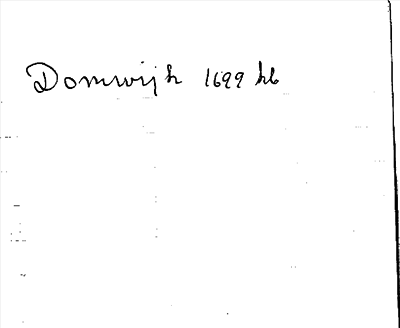 Domwijk 1699 hb